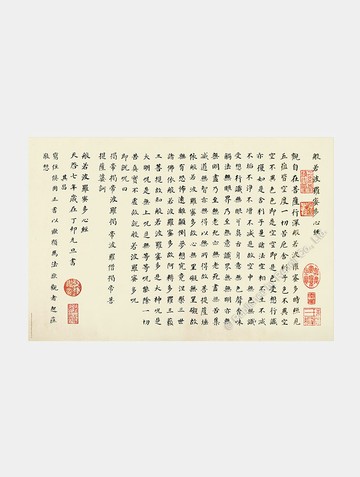 般若波羅蜜多心經
觀自在菩薩行深般若波羅蜜多時照見
五蘊皆空度一切苦厄舍利子色不異空
空不異色色即是空空即是色受想行識
亦復如是舍利子是諸法空相不生不滅
不垢不淨不增不減是故空中無色無
受想行識無眼耳鼻舌身意無色聲香味
觸法無眼界乃至無意識界無無明亦無
無明盡乃至無老死亦無老死盡無苦集
滅道無智亦無得以無所得故菩提薩埵
依般若波羅蜜多故心無罣礙無罣礙故
無有恐怖遠離顛倒夢想究竟涅槃三世
諸佛依般若波羅蜜多故阿耨多羅三藐
三菩提故知般若波羅蜜多是大神咒是
大明咒是無上咒是無等等咒能除一切
苦真實不虛故說般若波羅蜜多咒
即說咒曰
揭帝揭帝波羅揭帝波羅僧揭帝菩
提薩婆訶
般若波羅蜜多心經
天啟七年歲在丁卯元旦書
其昌